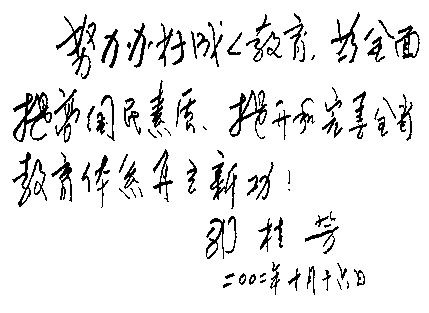 努力办好成人教育，为全面
提高国民素质、提升和完善全省
教育体系再立新功！
邵桂芳
二〇〇二年十月十六日